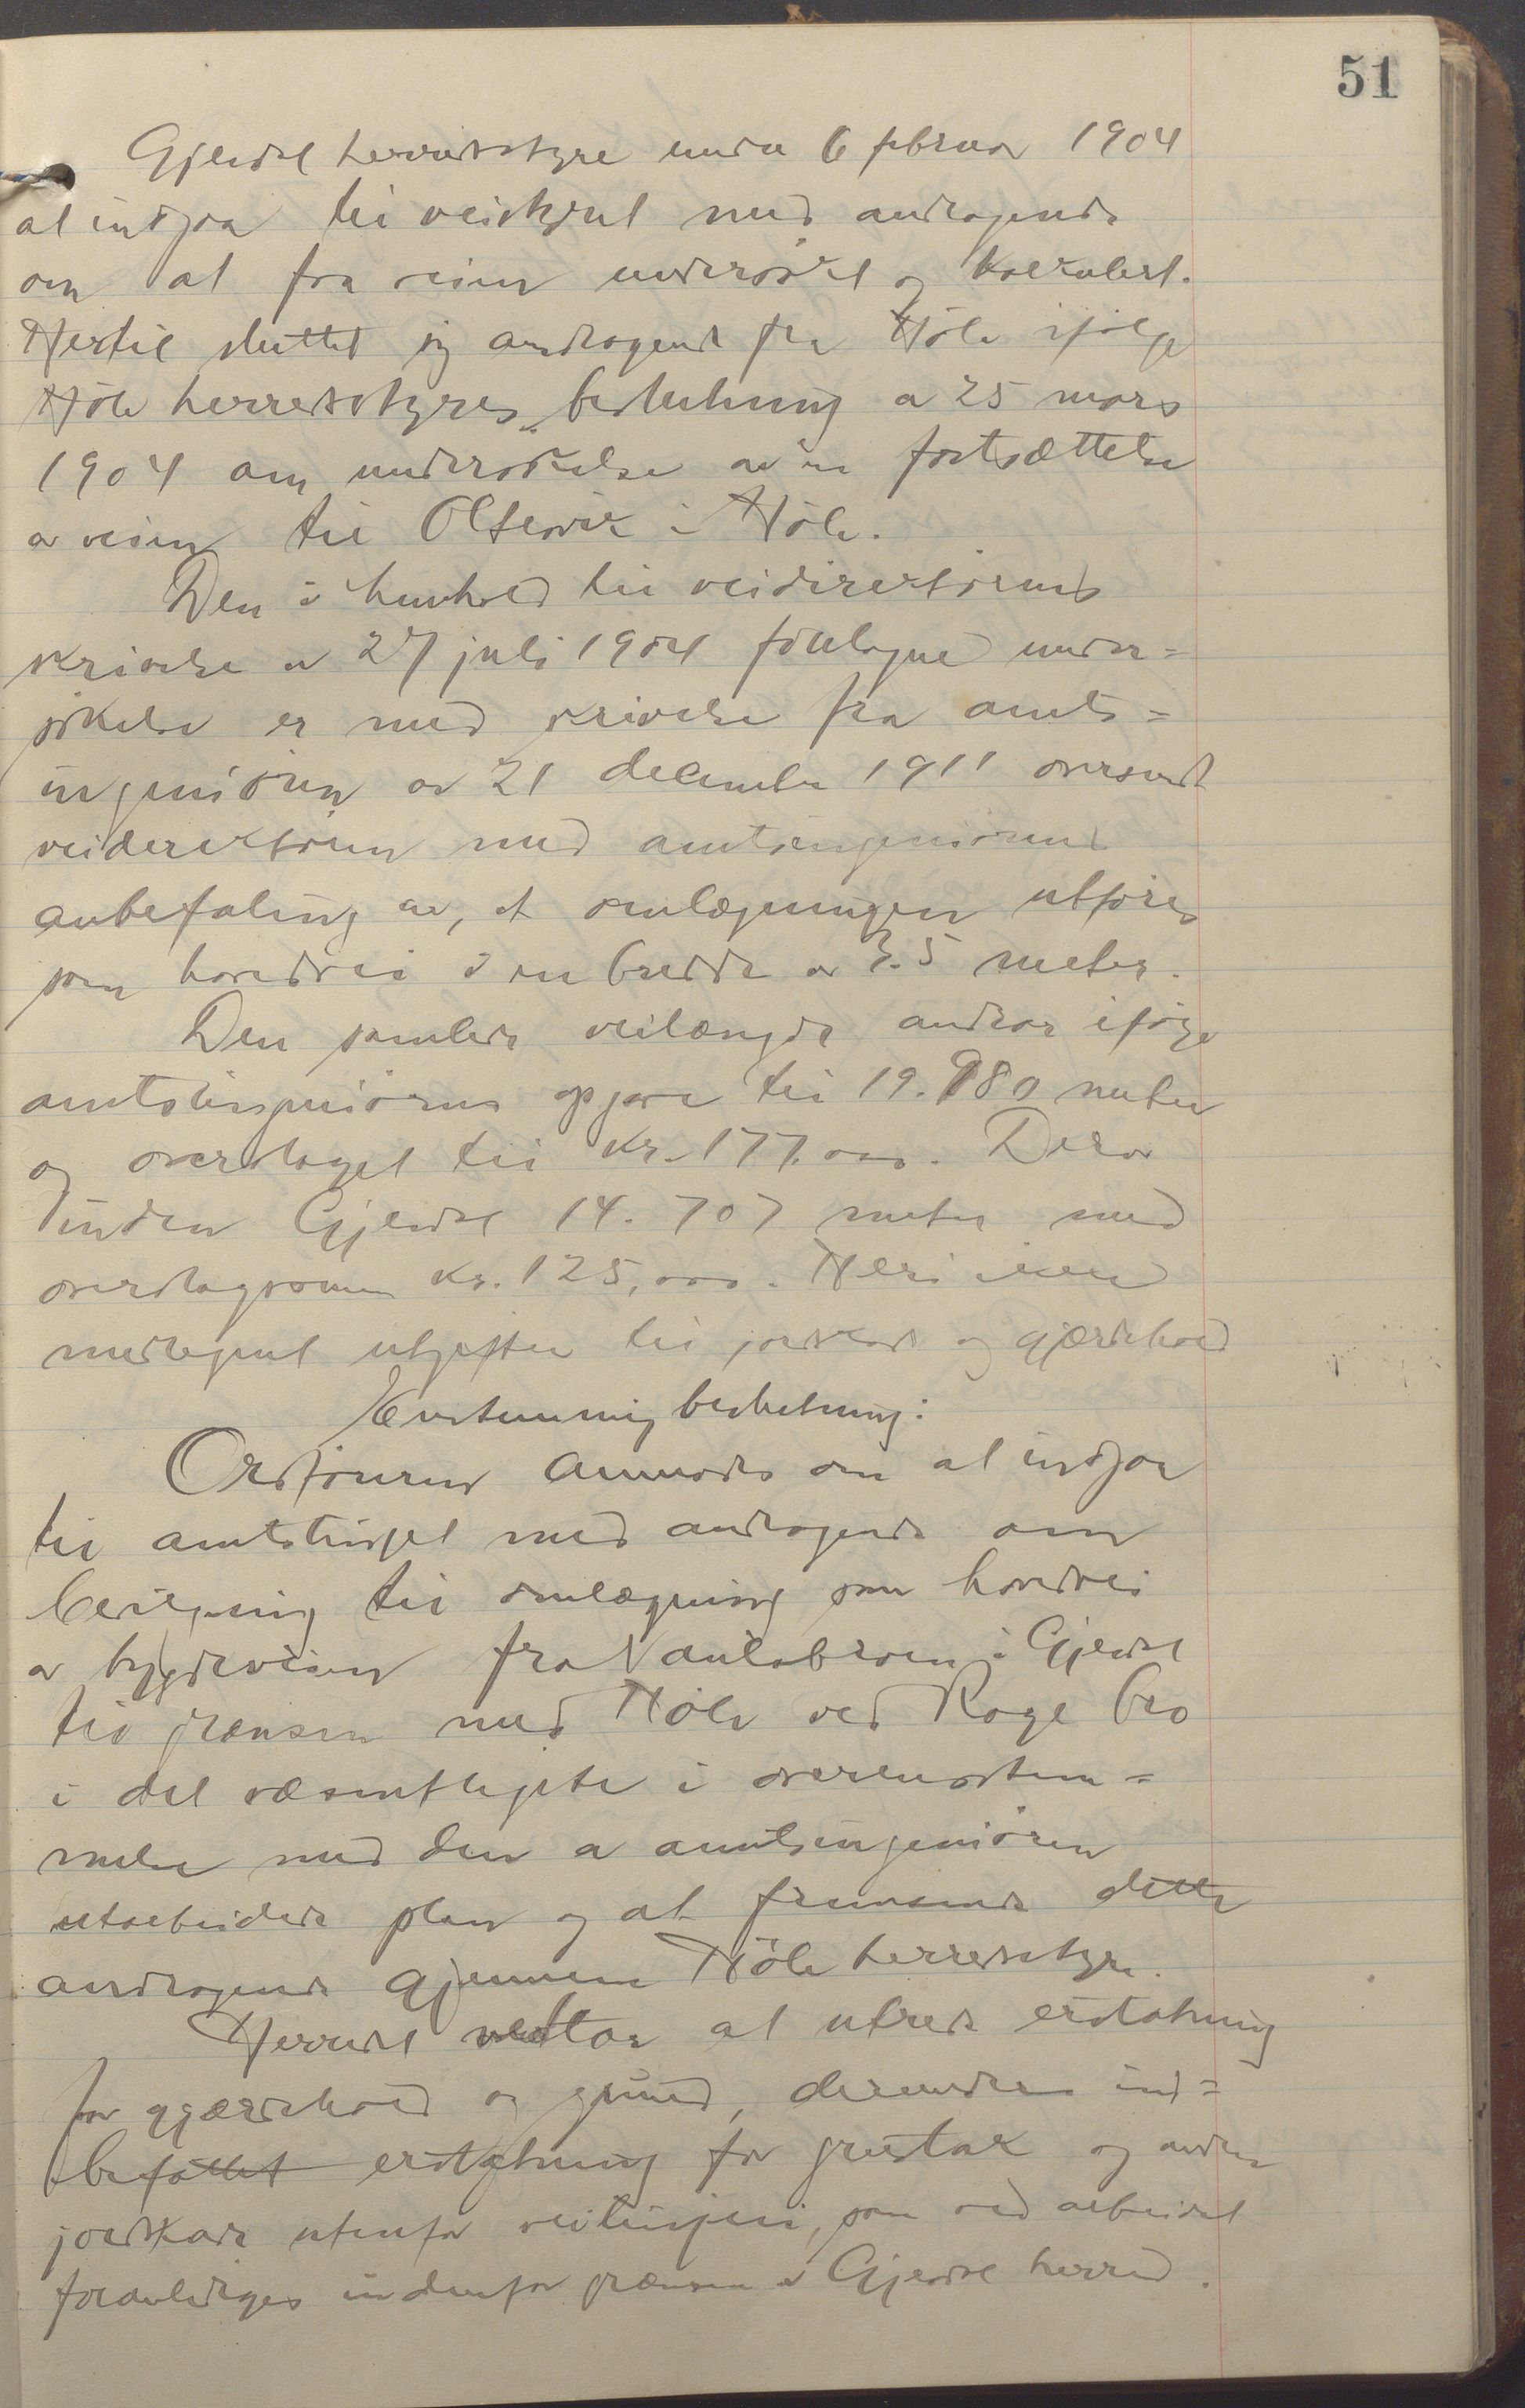 51
Gjesdal herredsstyre under 6 februar 1904
at indgaa til veistyret med andragende
om at faa veien undersökt og kalkulert.
Hertil sluttet sig andragende fra Höle ifölge
Höle herredsstyres beslutning av 25 mars
1904 om undersökelse av en fortsættelse
av veien til Oltesvik i Höle.
Den i henhold til veidirektörens
skrivelse av 27 juli 1904 foretagne under=
sökelse er med skrivelse fra amts=
ingeniören av 21 december 1911 oversendt
veidirektören med amtsingeniörens
anbefaling av, at omlægningen utföres
som hovedvei i en bredde av 3.5 meter.
Den samlede veilængde andrar ifölge
amtsingeniörens opgave til 19.980 meter
og overslaget til kr. 177.000. Derav
inden Gjesdal 14.707 meter med
overslagssum kr. 125,000. Heri ikke
medregnet utgifter til jordskade og gjærdehold
Enstemmig beslutning:
Ordföreren anmodes om at indgaa
til amtstinget med andragende om
bevilgning til omlægning som hovedvei
av bygdeveien fra Nautabroen i Gjesdal
til grænsen med Höle ved Rage bro
i det væsentligste i overensstem=
melse med den av amtsingeniören
utarbeidede plan og at fremsende dette
andragende gjennem Höle herredsstyre.
Herredet vedtar at utrede erstatning
for gjærdehold og grund, derunder ind=
befattet erstatning for grustak og anden
jordskade utenfor veilinjen, som ved arbeidet
foranlediges indenfor grænsen av Gjesdal herred.